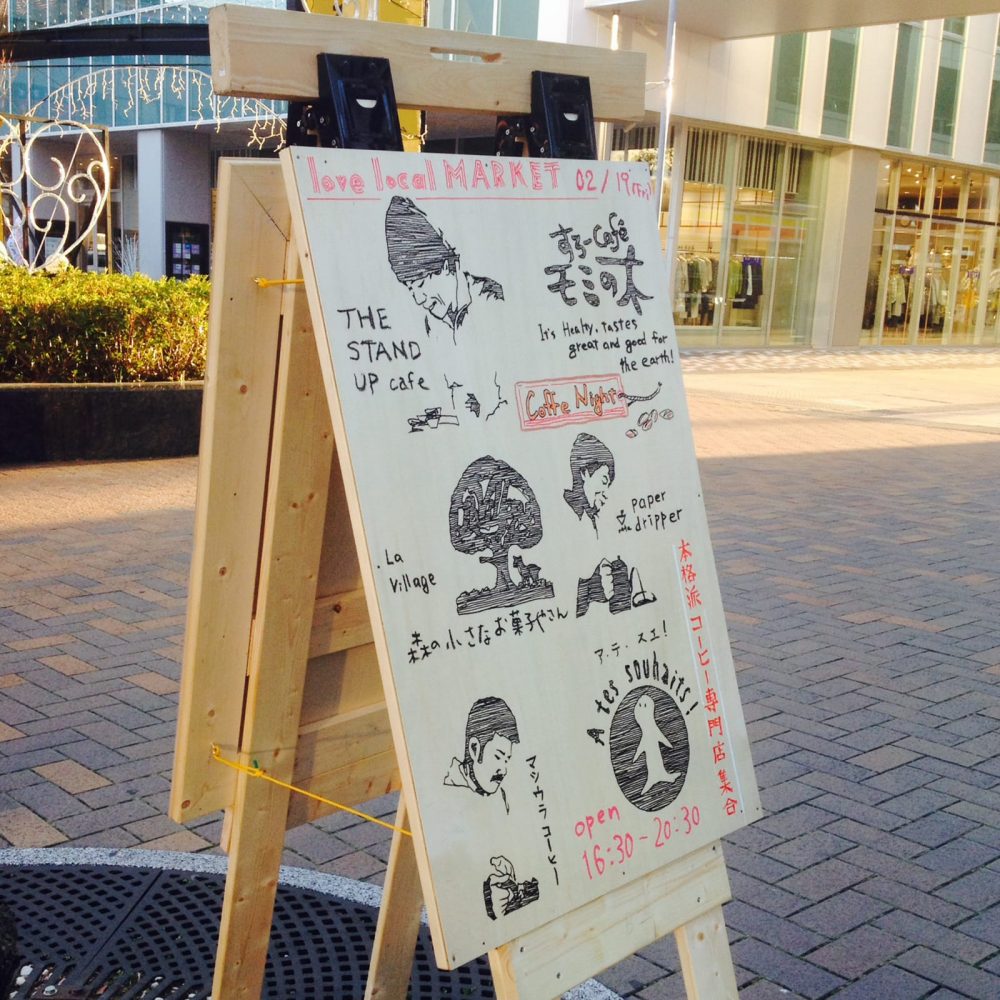 love local MARKET 02/19(Fri)
THE
STAND
UP cafe
すろーCafé
モミの木
It's Healty, tastes
great and good for
the earth!
Coffe Night
La
Village
paper
dripper
森の小さなお菓子やさん
本格派コーヒー専門店集合
ア・テ・スエ!
A tes souhaits!
マツウラコーヒー
open
16:30~20:30